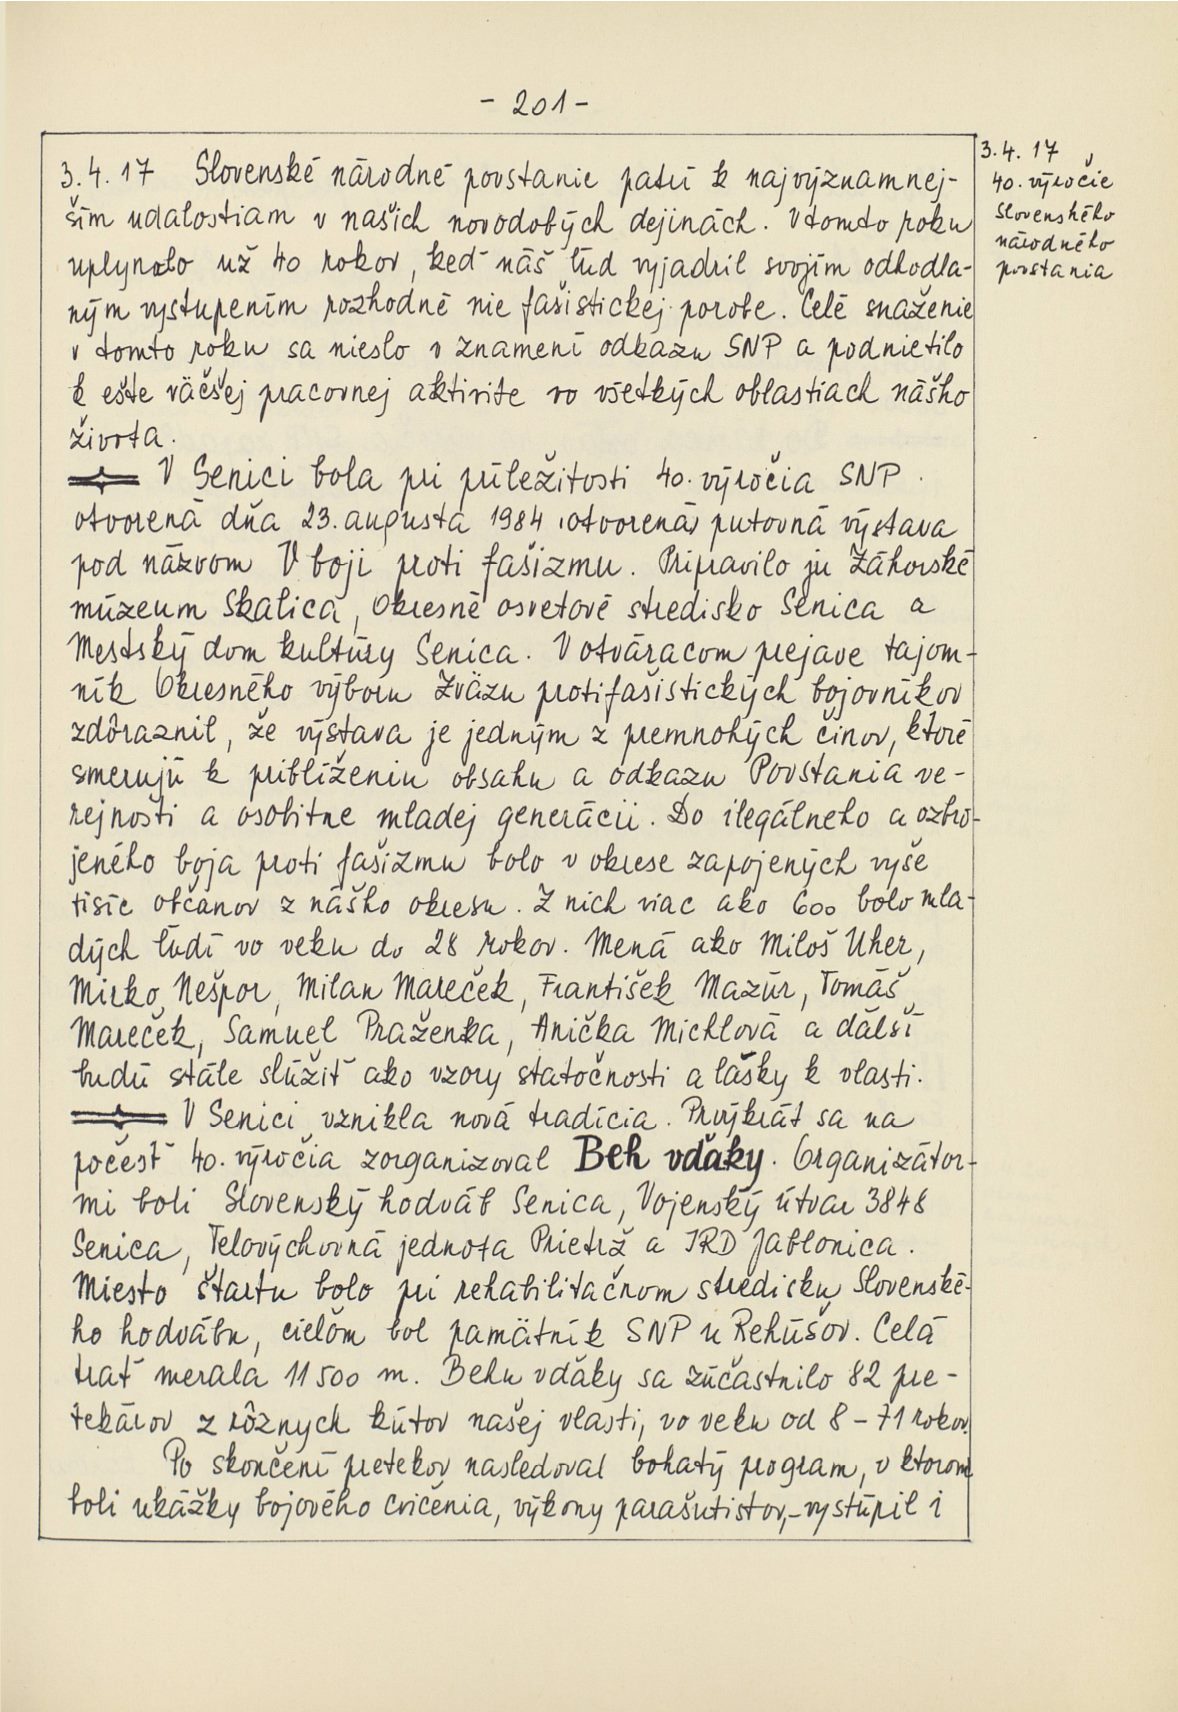 - 201 -
3.4.17 Slovenské národné povstanie patrí k najvýznamnej-
ším udalostiam v našich novodobých dejinách. V tomto roku
uplynolo už 40 rokov, keď náš ľud vyjadril svojím odhodla-
ným vystupením rozhodné nie fašistickej porobe. Celé snaženie
v tomto roku sa nieslo v znamení odkazu SNP a podnietilo
k ešte väčšej pracovnej aktivite vo všetkých oblastiach nášho
života.
V Senici bola pri príležitosti 40. výročia SNP
otvorená dňa 23. augusta 1984 (otvorená) putovná výstava
pod názvom V boji proti fašizmu. Pripravilo ju Záhorské
múzeum Skalica, Okresné osvetové stredisko Senica a
Mestský dom kultúry Senica. V otváracom prejave tajom-
ník Okresného výboru Zväzu protifašistických bojovníkov
zdôraznil, že výstava je jedným z premnohých činov, ktoré
smerujú k priblíženiu obsahu a odkazu Povstania ve-
rejnosti a osobitne mladej generácii. Do ilegálneho a ozbro-
jeného boja proti fašizmu bolo v okrese zapojených vyše
tisíc občanov z nášho okresu. Z nich viac ako 600 bolo mla-
dých ľudí vo veku do 28 rokov. Mená ako Miloš Uher,
Mirko Nešpor, Milan Mareček, František Mazúr, Tomáš
Mareček, Samuel Praženka, Anička Michlová a ďálší
budú stále slúžiť ako vzory statočnosti a lásky k vlasti.
V Senici vznikla nová tradícia. Prvýkrát sa na
počesť 40. výročia zorganizoval Beh vďaky. Organizátor-
mi boli Slovenský hodváb Senica, Vojenský útvar 3848
Senica, Telovýchovná jednota Prietrž a JRD Jablonica.
Miesto štartu bolo pri rehabilitačnom stredisku Slovenské-
ho hodvábu, cieľom bol pamätník SNP u Rehúšov. Celá
trať merala 11 500 m. Behu vďaky sa zúčastnilo 82 pre-
tekárov z rôznych kútov našej vlasti, vo veku od 8 - 71 rokov.
Po skončení pretekov nasledoval bohatý program, v ktorom
boli ukážky bojového cvičenia, výkony parašutistov,-vystúpil i
3.4.17
40. výročie
Slovenského
národného
povstania